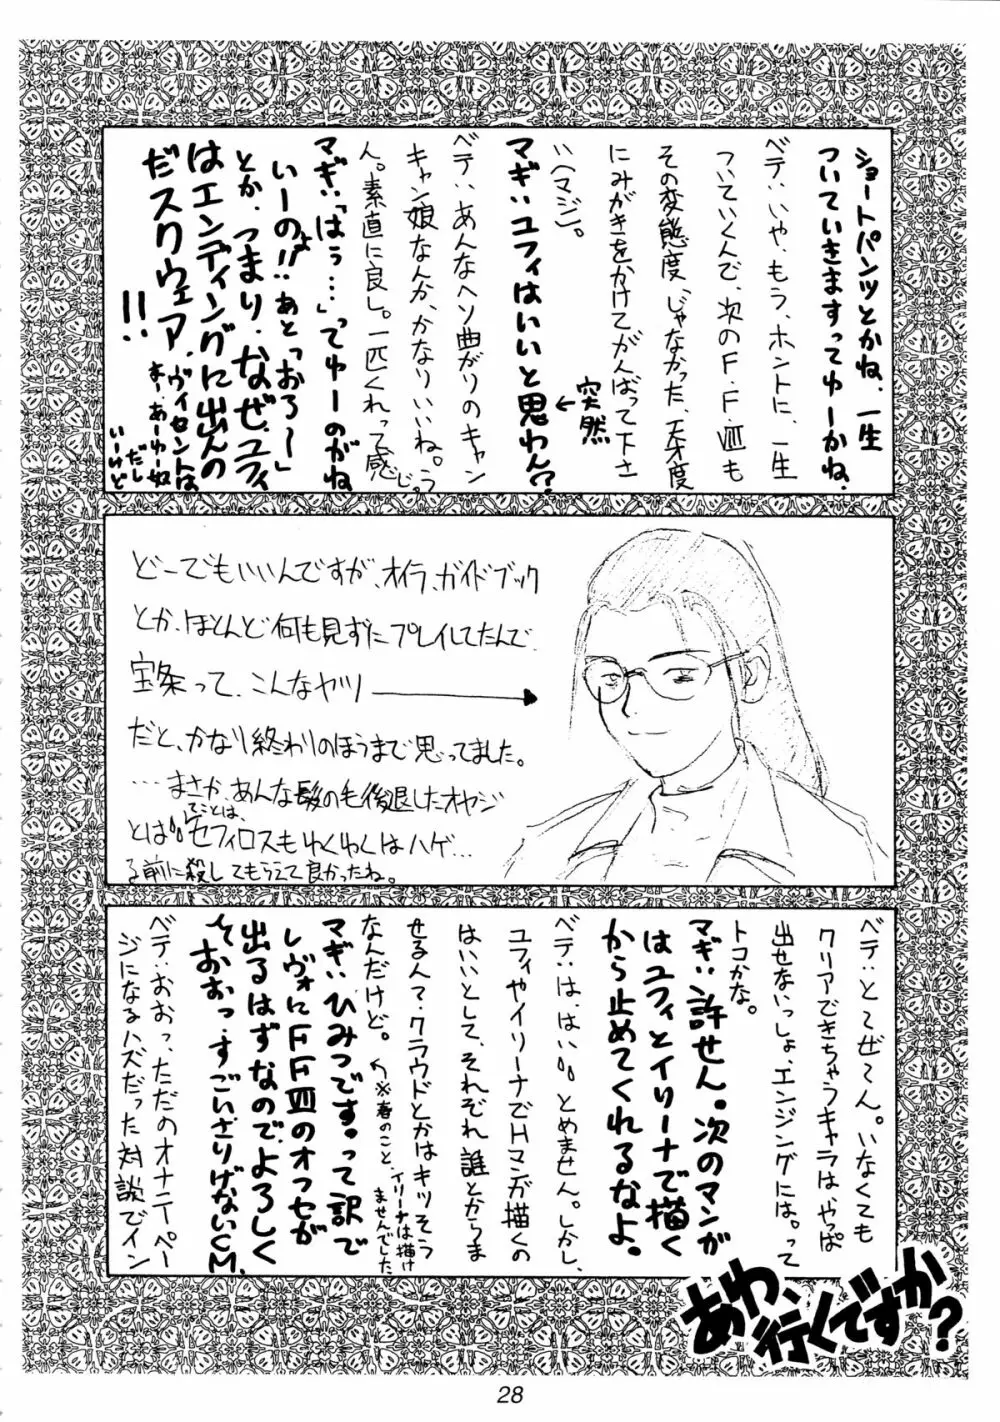 ショートパンツとかね、一生
ついていきますってゆーかね。
ベテ:いや、もう、ホントに、一生
ついていくんで、次のF.F.Ⅷも
その変態度、じゃなかった、天才度
にみがきをかけてがんばって下さ
い(マジ)。
マギ:ユフィはいいと思わん?
←突然
ベテ:あんなヘソ曲がりのキャン
キャン娘なんか、かなりいいね。う
ん。素直に良し。一匹くれって感じ。
マギ:「はぅ…」ってゆーのがね
いーのよ!!あと「おろ〜」
とか。つまり、なぜユフィ
はエンディングに出んの
だスクウェア!!
ヴィンセントは
まー、あーゆー奴
だし
いーけど
どーでもいいんですが、オイラ、ガイドブック
とか、ほとんど何も見ずにプレイしてたんで、
宝条って、こんなヤツ
だと、かなり終わりのほうまで思ってました。
…まさか、あんな髪の毛後退したオヤジ
とは。。てことは、セフィロスもゆくゆくはハゲ…
る前に殺してもらえて良かったね。
ベテ:とくぜくん。いなくても
クリアできちゃうキャラは、やっぱ
出せないっしょ、エンジングには。って
トコかな。
マギ:許せん。次のマンガ
はユフィとイリーナで描く
から止めてくれるなよ。
ベテ:は、はい。。とめません。しかし、
ユフィやイリーナでHマンガ描くの
はいいとして、それぞれ誰とからま
せるん?クラウドとかはキツそう
なんだけど。
↑※春のこと、イリーナは描け
ませんでした。
マギ:ひみつです。って訳で
レヴォにFFⅦのオフセが
出るはずなのでよろしく
っておおっ、すごいさりげないCM。
ベテ:おおっ、ただのオナニーペー
ジになるハズだった対談でイン
あわ、行くですか?
28